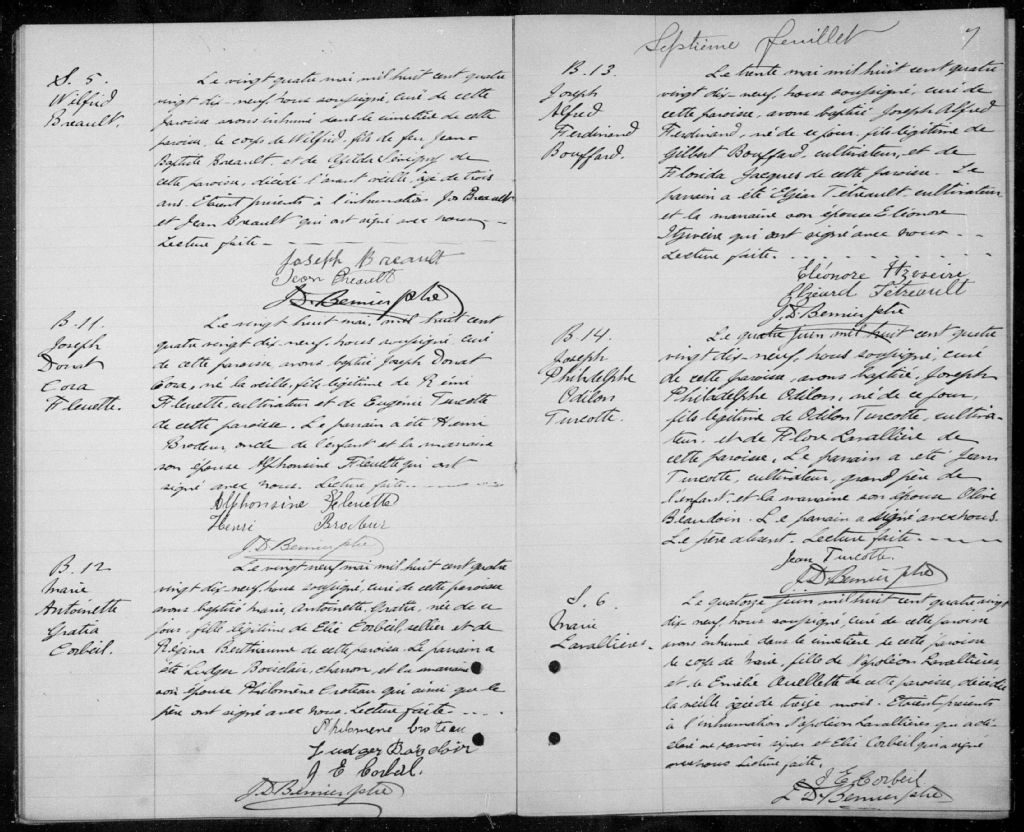 S. 5.
Wilfrid
Breault.
Le vingt quatre mai mil huit cent quatre
vingt dix-neuf, nous soussigné, curé de cette
paroisse avons inhumé dans le cimetière de cette
paroisse, le corps de Wilfrid, fils de feu Jean-
Baptiste Breault, et de Sévigny de
cette paroisse, décédé l'avant veille, âgé de trois
ans. Etaient présents à l'inhumation Jos Breault
et Jean Breault qui ont signé avec nous.
Lecture faite.
Joseph Breault
Jean Breault
J. D. Bernier ptre
B. 11.
Joseph
Donat
Cora
Fleuette.
Le vingt huit mai, mil huit cent
quatre vingt dix-neuf, nous soussigné, curé
de cette paroisse, avons baptisé Joseph Donat
Cora, né la veille, fils légitime de Rémi
Fleuette, cultivateur et de Eugénie Turcotte
de cette paroisse. Le parrain a été Henri
Brodeur, oncle de l'enfant et la marraine
son épouse Alphonsine Fleuette qui ont
signé avec nous. Lecture faite.
Alphonsine Fleuette
Henri Brodeur
J. D. Bernier ptre
B. 12
Marie
Antoinette
Gratia
Corbeil.
Le vingt neuf mai mil huit cent quatre
vingt dix-neuf, nous soussigné, curé de cette paroisse
avons baptisé Marie, Antoinette, Gratia, née de ce
jour, fille légitime de Elie Corbeil, sellier et de
Régina Berthiaume de cette paroisse. Le parrain a
été Ludger Boisclair, charron et la marraine
son épouse Philomène Croteau qui ainsi que le
père ont signé avec nous. Lecture faite.
Philomène Croteau
Ludger Boisclair
J E Corbeil.
J. D. Bernier ptre
Septième feuillet
7
B. 13.
Joseph
Alfred
Ferdinand
Bouffard.
Le trente mai mil huit cent quatre
vingt dix-neuf, nous soussigné, curé de
cette paroisse, avons baptisé Joseph Alfred
Ferdinand, né de ce jour, fils légitime de
Gilbert Bouffard, cultivateur, et de
Florida Jacques de cette paroisse. Le
parrain a été Elzéar Tétreault cultivateur
et la marraine son épouse Eléonore
qui ont signé avec nous.
Lecture faite.
Eléonore
Elzéard Tétreault
J. D. Bernier ptre
B. 14.
Joseph
Philidelphe
Odilon
Turcotte.
Le quatre juin mil huit cent quatre
vingt dix-neuf, nous soussigné, curé
de cette paroisse, avons baptisé, Joseph
Philidelphe Odilon, né de ce jour,
fils légitime de Odilon Turcotte, cultiva-
teur, et de Flore Lavallière de
cette paroisse. Le parrain a été Jean
Turcotte, cultivateur, grand père de
l'enfant et la marraine son épouse Olive
Beaudoin. Le parrain a signé avec nous.
Le père absent. Lecture faite.
Jean Turcotte.
J. D. Bernier ptre
S. 6.
Marie
Lavallières.
Le quatorze juin mil huit cent quatre vingt
dix neuf, nous soussigné, curé de cette paroisse
avons inhumé dans le cimetière de cette paroisse
le corps de Marie, fille de Napoléon Lavallières
et de Emélie Ouellette de cette paroisse, décédée
la veille âgée de treize mois. Etaient présents
à l'inhumation Napoléon Lavallières qui a dé-
claré ne savoir signer et Elie Corbeil qui a signé
avec nous Lecture faite.
J E Corbeil
J. D. Bernier ptre